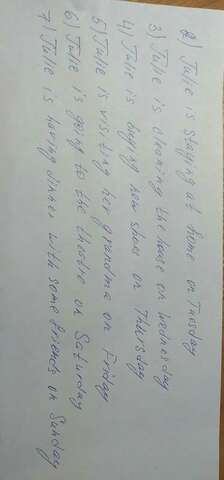 2) Julie is staying at home on Tuesday
3) Julie is cleaning the house on Wednesday
4) Julie is buying new shoes on Thursday
5) Julie is visiting her grandma on Friday
6) Julie is going to the theatre on Saturday
7) Julie is having dinner with some friends on Sunday